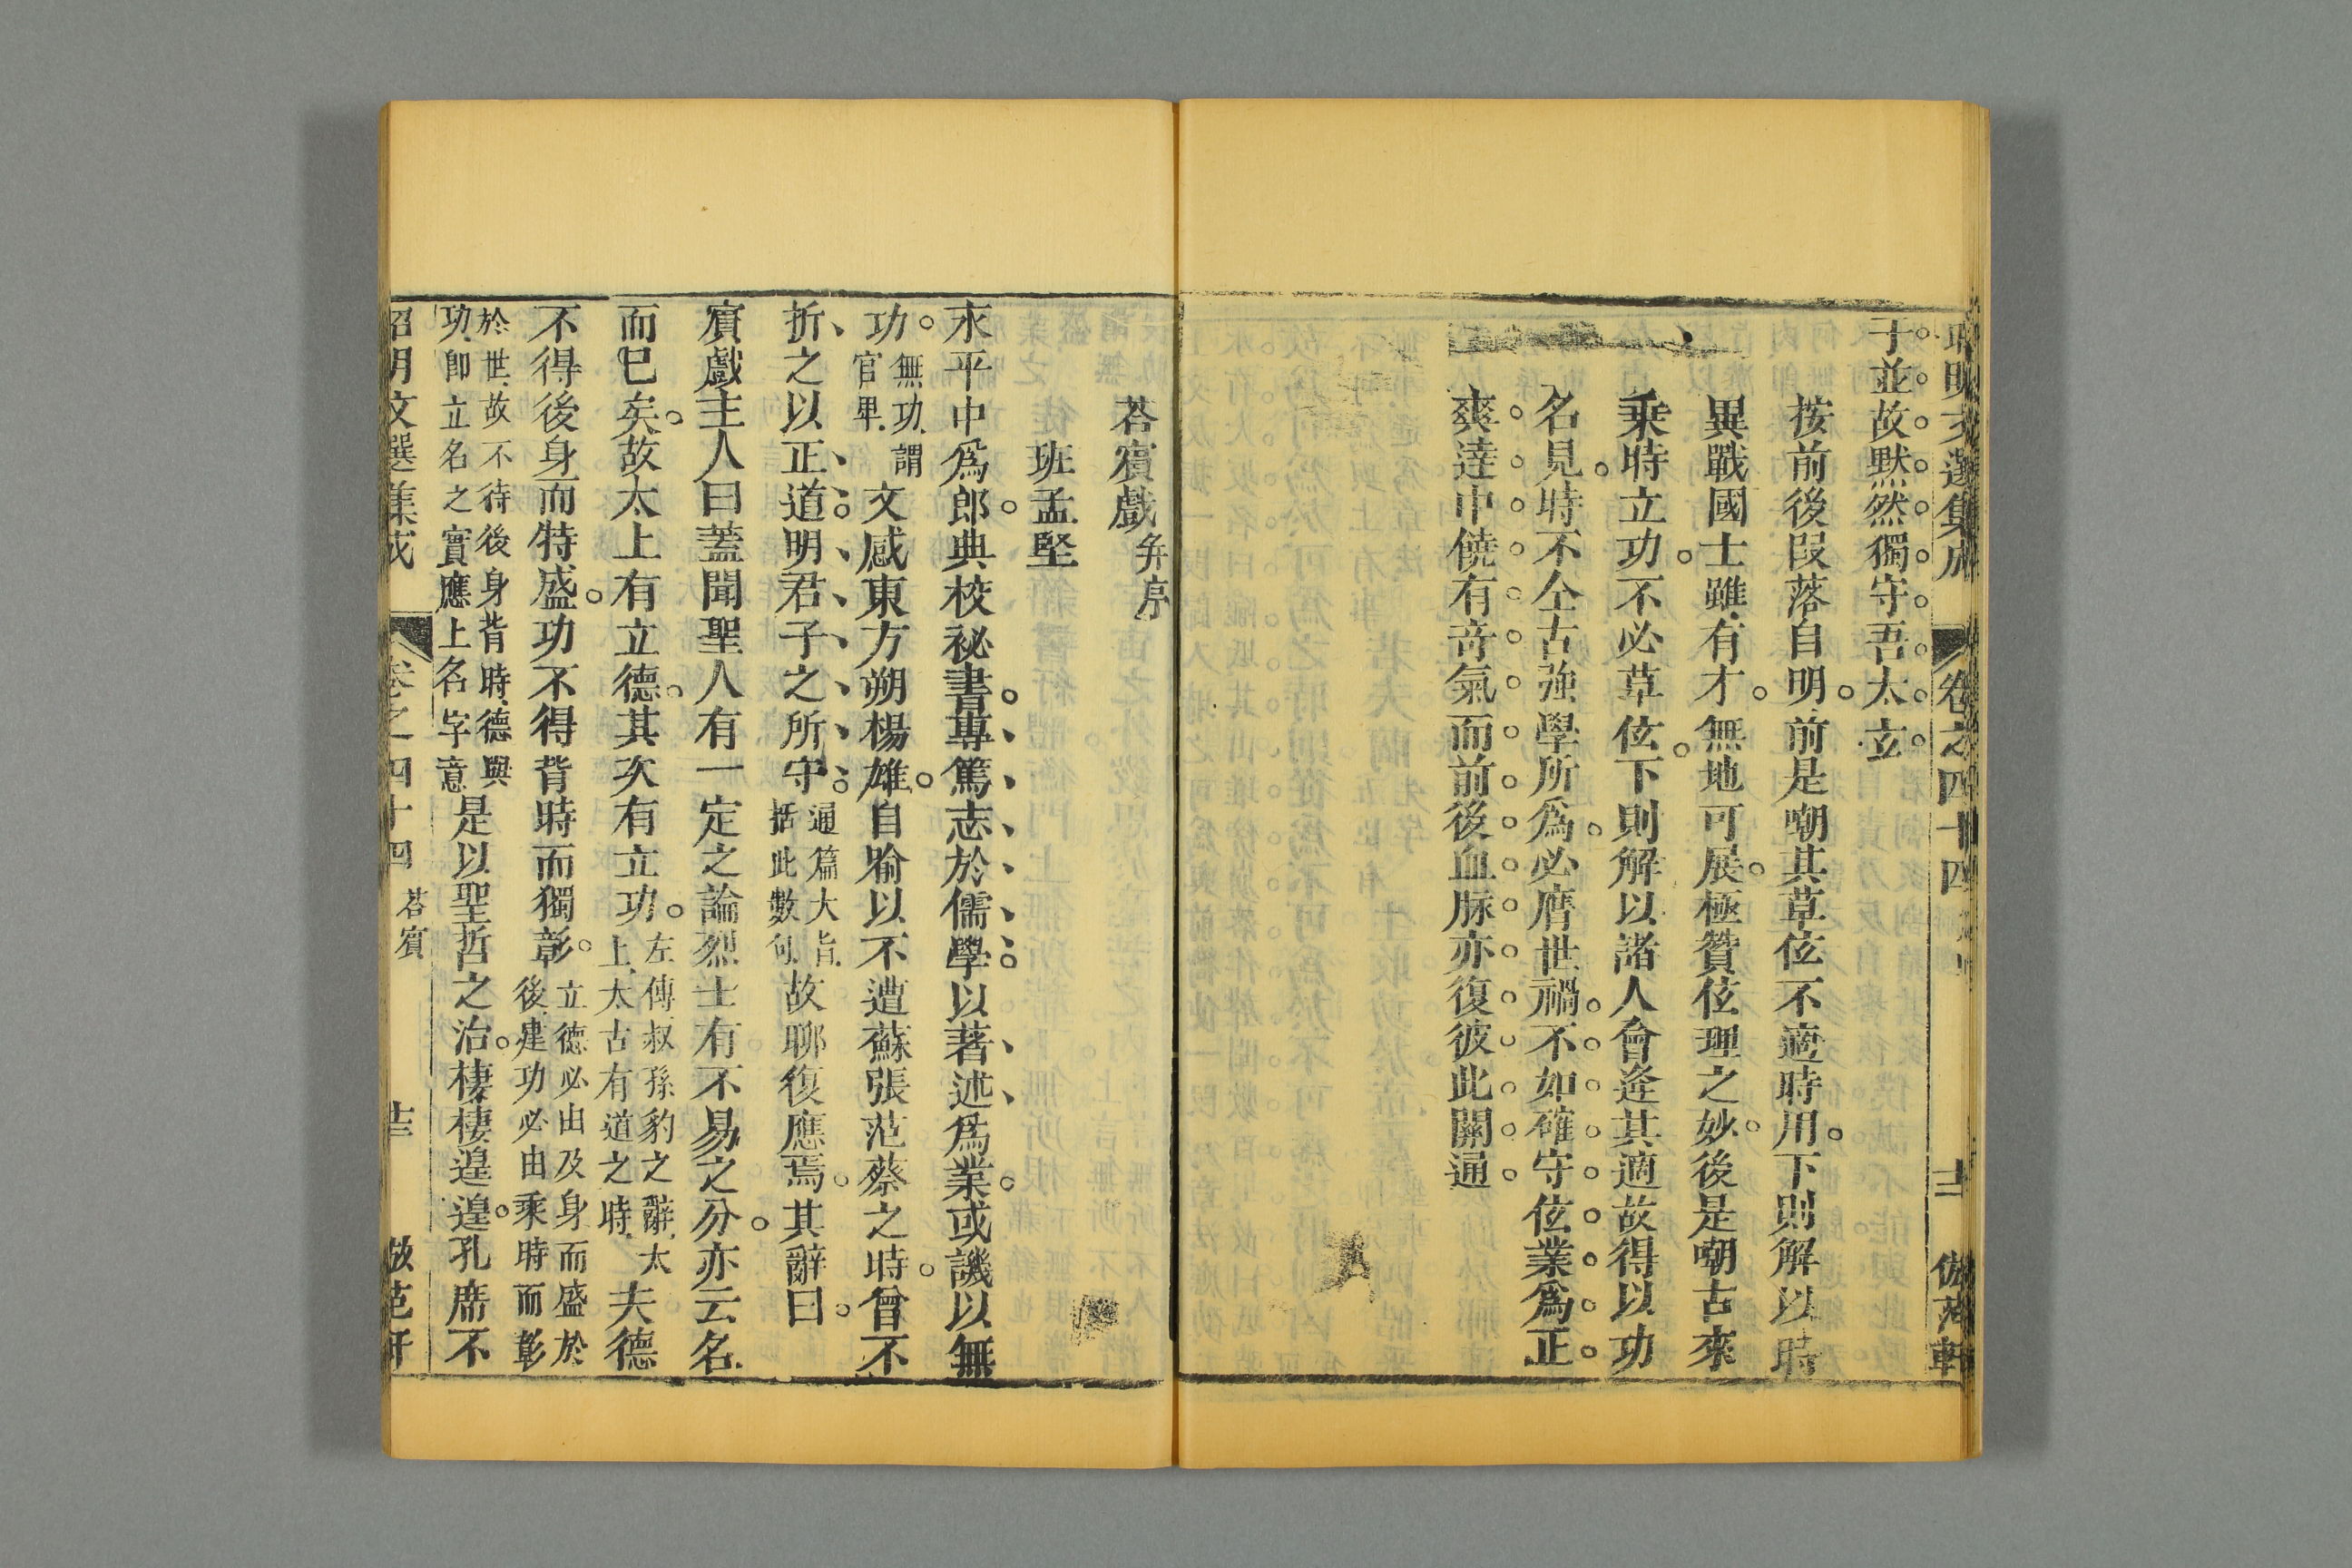 昭明文選集成 卷之四十四 十三 倣范軒
于並故默然獨守吾太玄
按前後段落自明前是嘲其草伭不適時用下則解以時
異戰國士雖有才無地可展極贊伭理之妙後是嘲古來
乘時立功不必草伭下則解以諸人會逢其適故得以功
名見時不仝古強學所爲必膺世禍不如確守伭業爲正
爽達中饒有奇氣而前後血脉亦復彼此關通
荅賓戲并序
班孟堅
永平中爲郎典校祕書專篤志於儒學以著述爲業或譏以無
功無功謂官卑文感東方朔楊雄自喻以不遭蘇張范蔡之時曾不
折之以正道明君子之所守通篇大旨括此數句故聊復應焉其辭曰
賓戲主人曰蓋聞聖人有一定之論烈士有不易之分亦云名
而已矣故太上有立德其次有立功左傳叔孫豹之辭太上太古有道之時夫德
不得後身而特盛功不得背時而獨彰立德必由及身而盛於後建功必由乘時而彰
於世故不待後身背時德與功卽立名之實應上名字意是以聖哲之治棲棲遑遑孔席不
昭明文選集成 卷之四十四 荅賓 十三 倣范軒